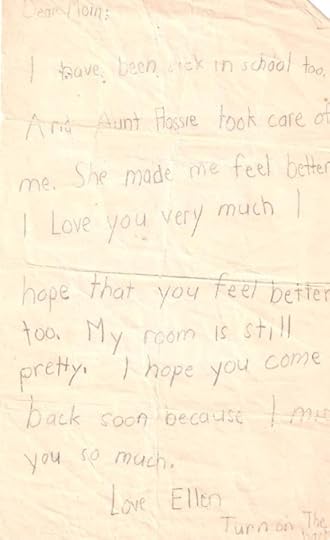 Dear Mom:
I have been sick in school too.
And Aunt Flossie took care of
me. She made me feel better
I Love you very much I
hope that you feel better
too. My room is still
pretty. I hope you come
back soon because I miss
you so much.
Love Ellen
Turn on The
back